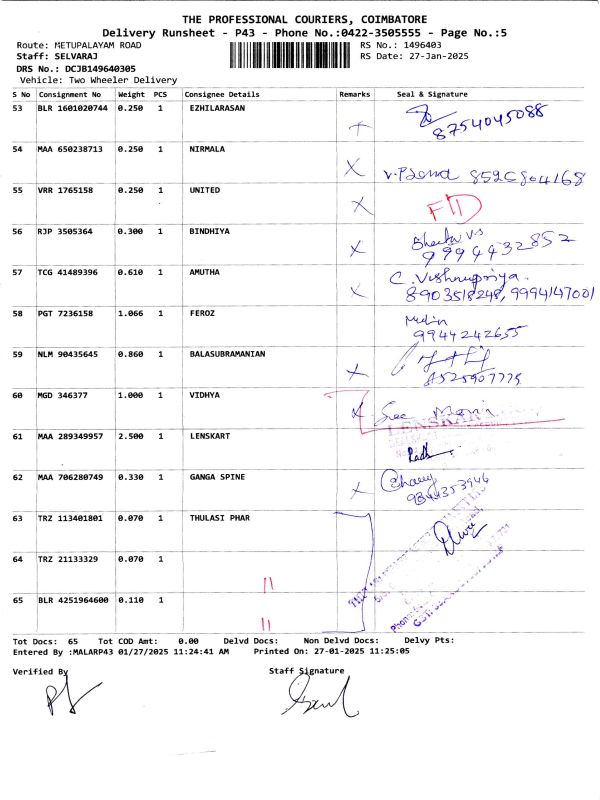 THE PROFESSIONAL COURIERS, COIMBATORE
Delivery Runsheet - P43 - Phone No.:0422-3505555 - Page No.:5
Route: METUPALAYAM ROAD RS No.: 1496403
Staff: SELVARAJ RS Date: 27-Jan-2025
DRS No.: DCJB149640305
Vehicle: Two Wheeler Delivery
S No Consignment No Weight PCS Consignee Details Remarks Seal & Signature
53 BLR 1601020744 0.250 1 EZHILARASAN
8754045088
54 MAA 650238713 0.250 1 NIRMALA X
55 VRR 1765158 0.250 1 UNITED X
56 RJP 3505364 0.300 1 BINDHIYA X
9994432852
57 TCG 41489396 0.610 1 AMUTHA X C. Vishnupriya.
8903518248, 9994147001
58 PGT 7236158 1.066 1 FEROZ
9944242655
59 NLM 90435645 0.860 1 BALASUBRAMANIAN X
60 MGD 346377 1.000 1 VIDHYA X
LENSKART
61 MAA 289349957 2.500 1 LENSKART
62 MAA 706280749 0.330 1 GANGA SPINE X
9844353946
63 TRZ 113401801 0.070 1 THULASI PHAR
64 TRZ 21133329 0.070 1
65 BLR 4251964600 0.110 1
Tot Docs: 65 Tot COD Amt: 0.00 Delvd Docs: Non Delvd Docs: Delvy Pts:
Entered By :MALARP43 01/27/2025 11:24:41 AM Printed On: 27-01-2025 11:25:05
Verified By Staff Signature